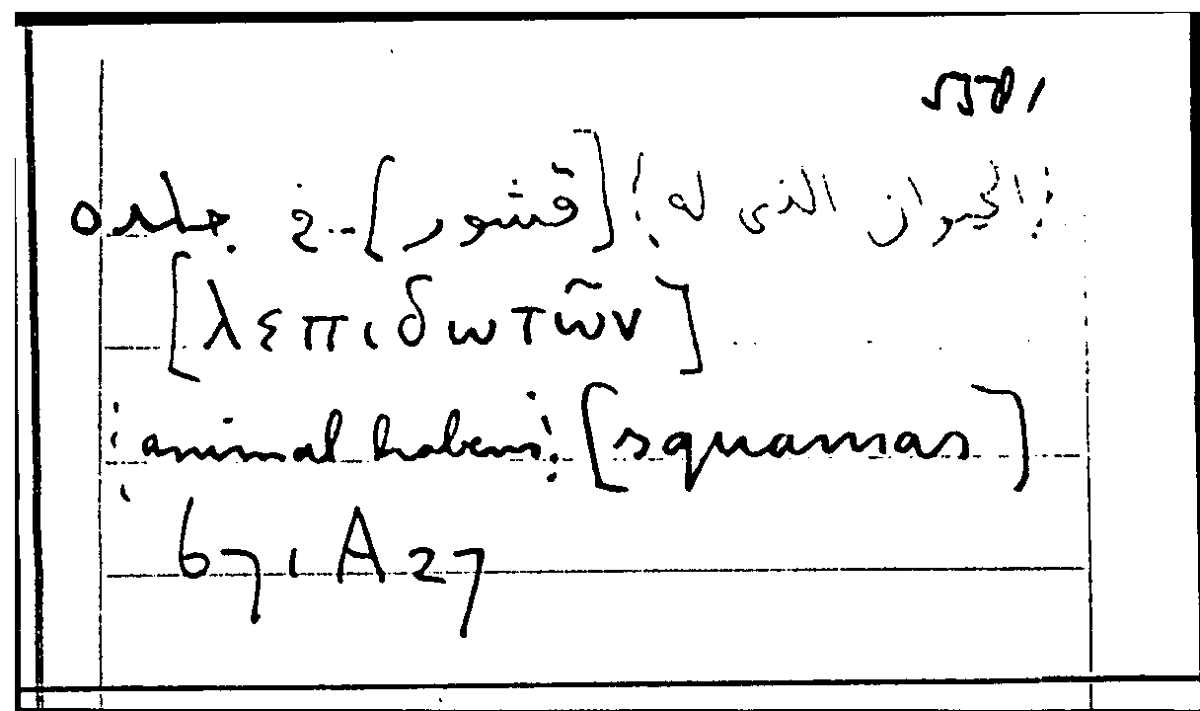 ⁝الحيوان الذى له⁝ [قشور] فى جلده
[λεπιδωτῶν]
⁝animal habens⁝ [squamas]
671 A 27